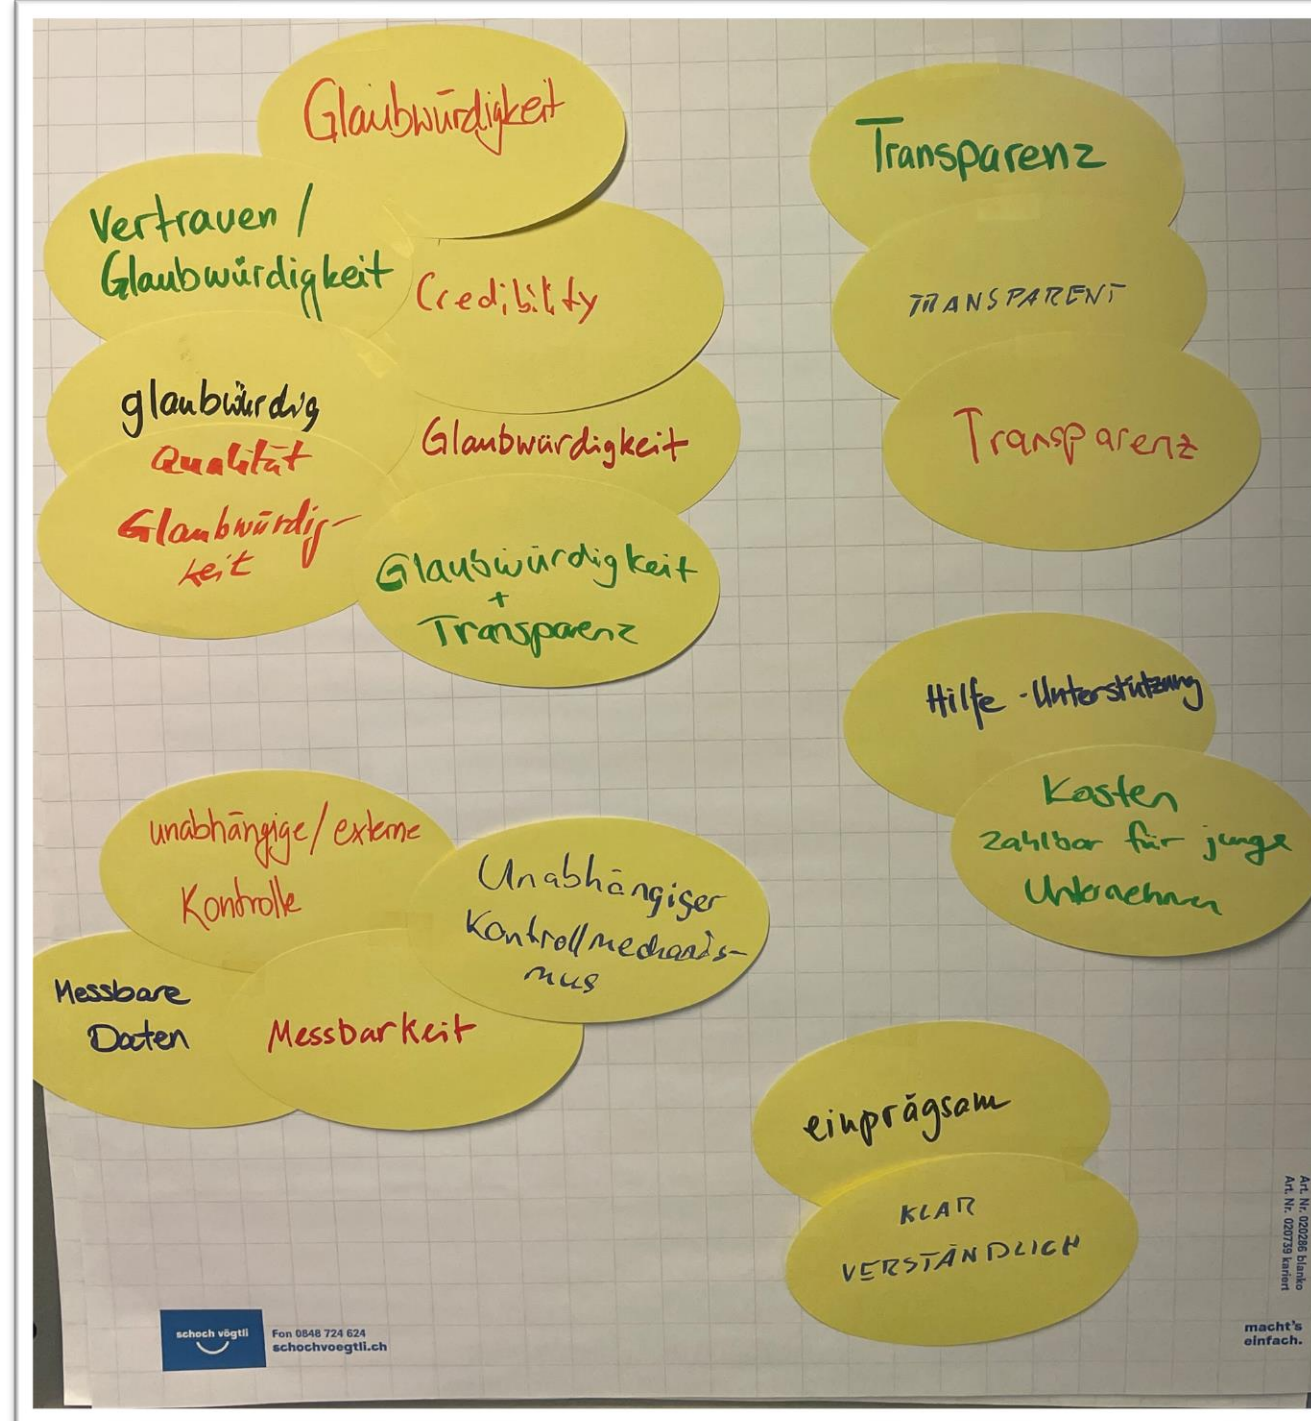 Glaubwürdigkeit
Vertrauen /
Glaubwürdigkeit
Credibility
glaubwürdig
Glaubwürdigkeit
Qualität
Glaubwürdig-
keit
Glaubwürdigkeit
+
Transparenz
Transparenz
TRANSPARENT
Transparenz
Hilfe - Unterstützung
Kosten
zahlbar für junge
Unternehmen
unabhängige/externe
Kontrolle
Unabhängiger
Kontrollmechanis-
mus
Messbare
Daten
Messbarkeit
einprägsam
KLAR
VERSTÄNDLICH
schoch vögtli
Fon 0848 724 624
schochvoegtli.ch
Art. Nr. 020286 blanko
Art. Nr. 020739 kariert
macht's
einfach.